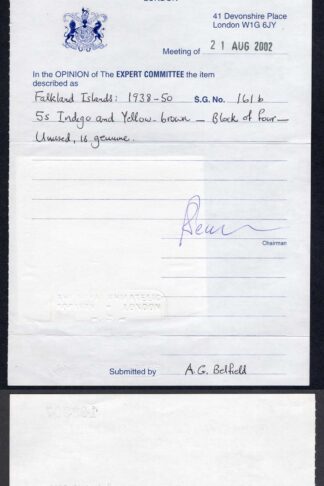 LONDON
41 Devonshire Place
London W1G 6JY
Meeting of 21 AUG 2002
In the OPINION of The EXPERT COMMITTEE the item
described as
Falkland Islands: 1938-50 S.G. No. 161b
5s Indigo and Yellow-brown - Block of Four -
Unused, is genuine.
Chairman
LONDON
Submitted by A.G. Belfield